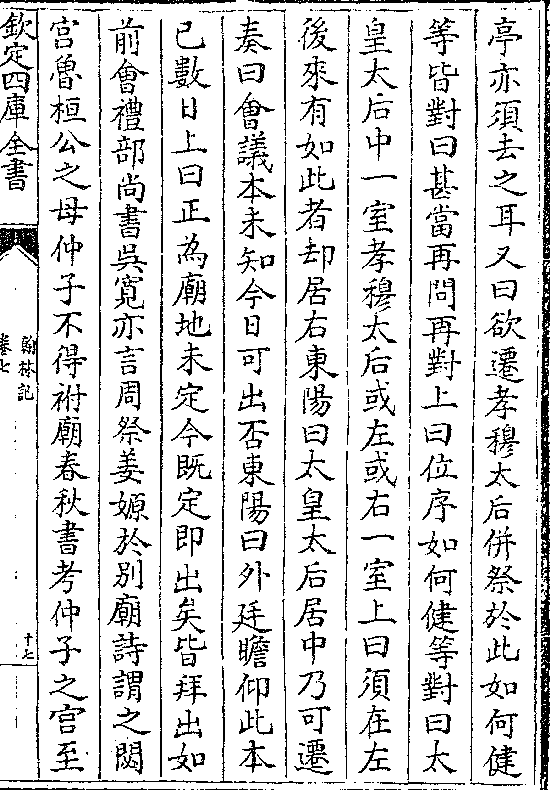 亭亦須去之耳又曰欲遷孝穆太后併祭於此如何健
等皆對曰甚當再問再對上曰位序如何健等對曰太
皇太后中一室孝穆太后或左或右一室上曰須在左
後來有如此者却居右東陽曰太皇太后居中乃可遷
奏曰會議本未知今日可出否東陽曰外廷瞻仰此本
已數日上曰正為廟地未定今既定即出矣皆拜出如
前會禮部尚書吳寛亦言周祭姜嫄於別廟詩謂之閟
宮魯桓公之母仲子不得祔廟春秋書考仲子之宮至
欽定四庫全書
翰林記
卷七
十七